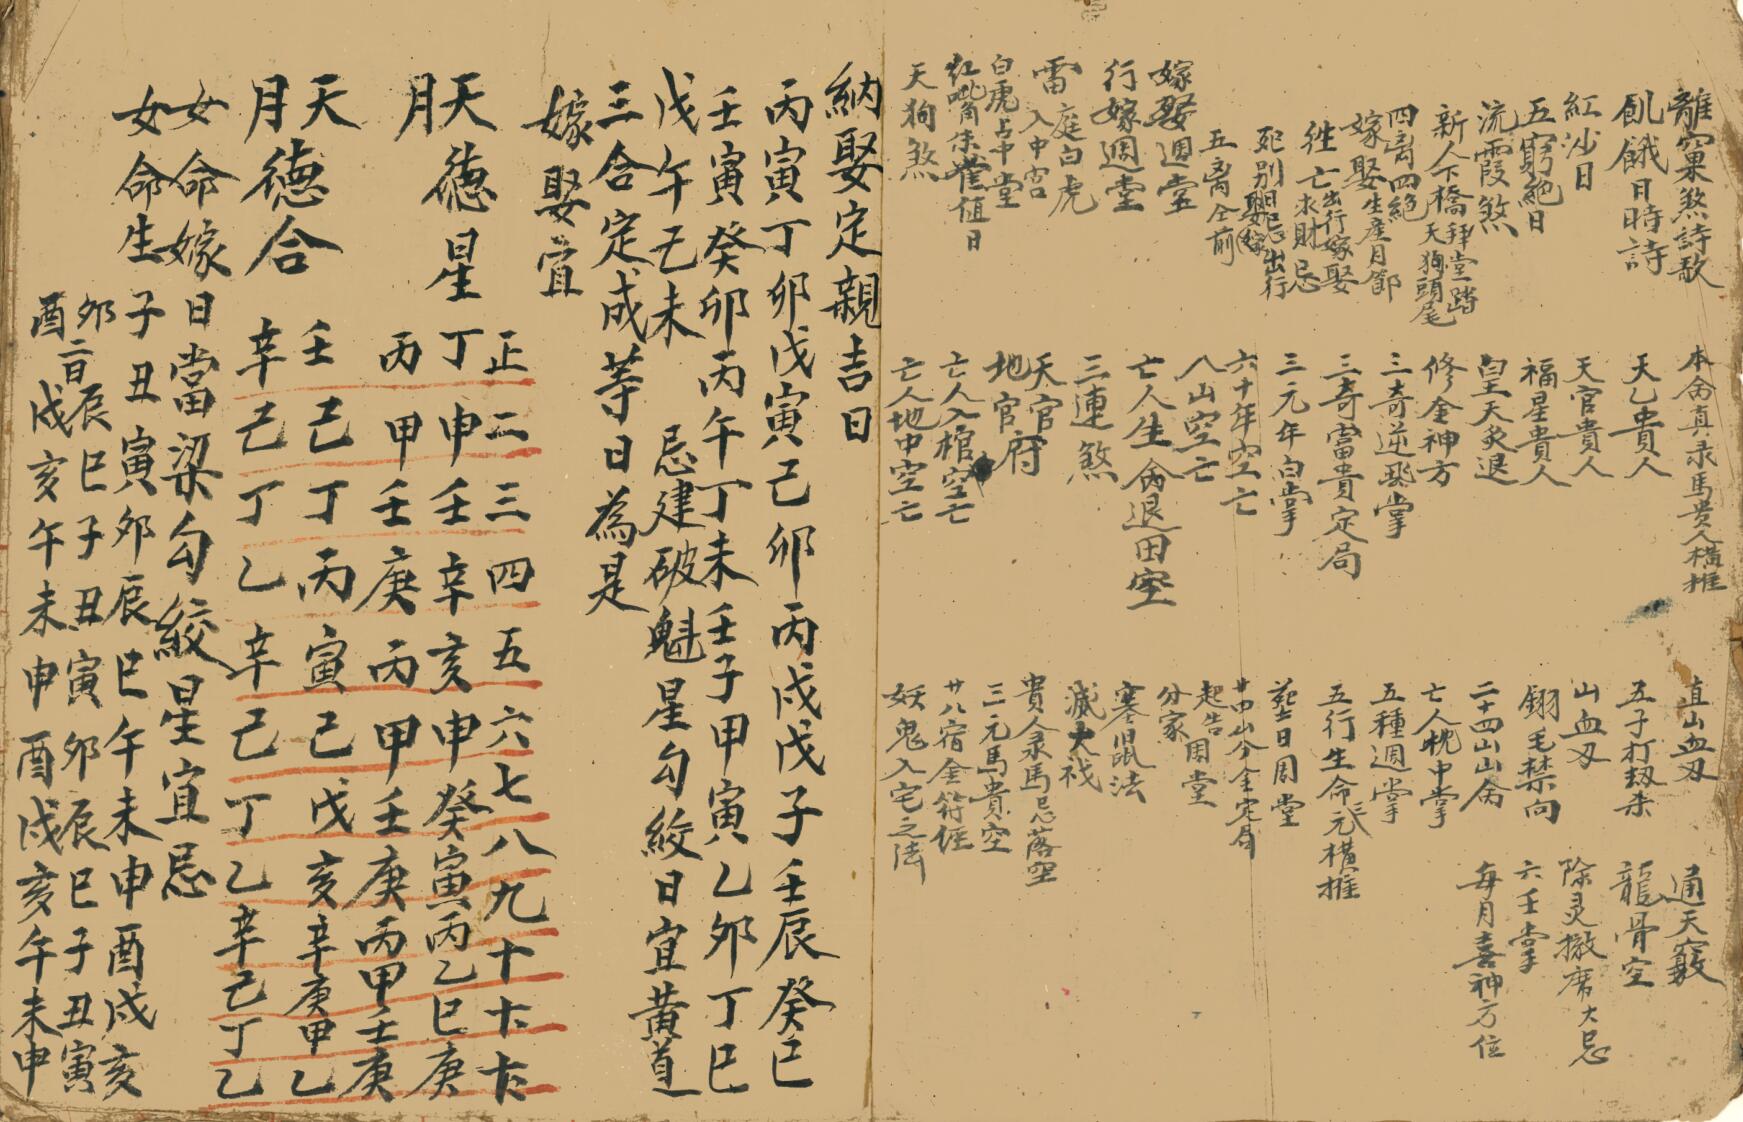 離窠煞詩歌
飢餓日時詩
紅沙日
五窮絕日
流霞煞
新人下橋拜堂踏
四离四絕天狗頭尾
嫁娶生產月節
徃亡出行嫁娶求財忌
死别日忌出行嫁娶
五离仝前
嫁娶週堂
行嫁週堂
雷庭白虎
入中宮
白虎占中堂
紅嘴朱雀值日
天狗煞
本命真录馬贵人橫推
天乙貴人
天官貴人
福星貴人
皇天炙退
修金神方
三奇逆飛掌
三奇富貴定局
三元年白掌
六十年空亡
八山空亡
亡人生命退田空
三連煞
天官
地官府
亡人入棺空亡
亡人地中空亡
直山血刃
五子打劫杀
山血刃
翎毛禁向
二十四山山命
亡人枕中掌
五種週掌
五行生命三元橫推
葬日周堂
廿四山分金定局
起告周堂
分家
塞鼠法
滅火伐
貴人录馬忌落空
三元馬貴空
廿八宿金符經
妖鬼入宅之法
通天竅
龍骨空
除灵撤席大忌
六壬掌
每月喜神方位
納娶定親吉日
丙寅丁卯戊寅己卯丙戌戊子壬辰癸巳
壬寅癸卯丙午丁未壬子甲寅乙卯丁巳
戊午己未 忌建破魁星勾絞日宜黃道
三合定成等日為是
嫁娶宜
正二三四五六七八九十十一十二
天德星丁申壬辛亥申癸寅丙乙巳庚
月 丙甲壬庚丙甲壬庚丙甲壬庚
天德合壬己丁丙寅己戊亥辛庚甲乙
月 辛己丁乙辛己丁乙辛己丁乙
女命嫁日當梁勾絞星宜忌
女命生子丑寅卯辰巳午未申酉戌亥
卯辰巳子丑寅卯辰巳子丑寅
二日
酉戌亥午未申酉戌亥午未申